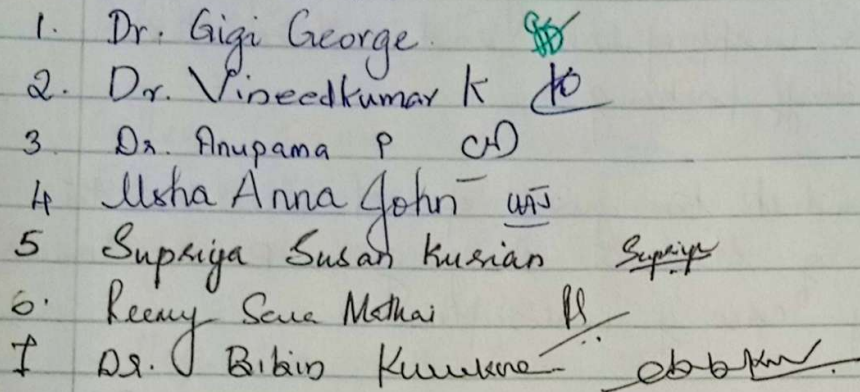 1. Dr. Gigi George.
2. Dr. Vineedkumar K
3. Dr. Anupama P
4 Usha Anna John UAJ
5 Supriya Susan Kurian Supriya
6. Reemy Sara Mathai
7 Dr. Bibin